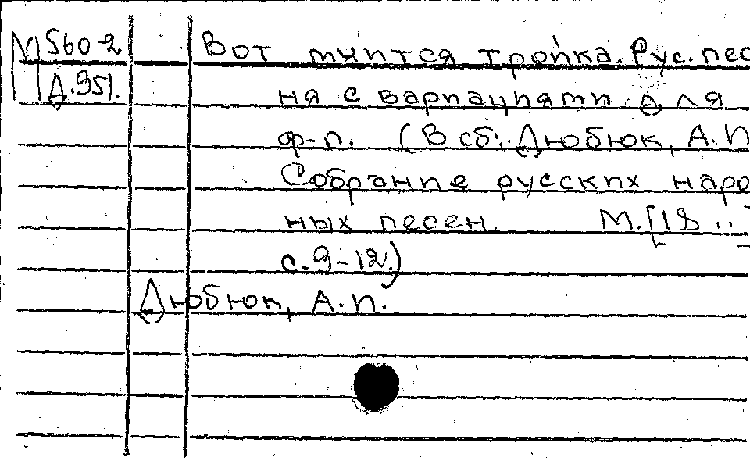 М 560-2 Вот мчится тройка. Рус. пес
Д.951. ня с вариациями для
ф-п. (В сб: Дюбюк, А.П
Собрание русских наро
ных песен. М.[18 ..
с.9-12.)
Дюбюк, А.П.